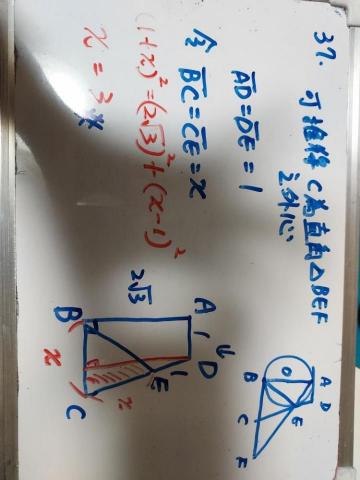 37. 可推得 C 為直角△BEF
之外心
A̅D̅=D̅E̅=1
令 B̅C̅=C̅E̅=x
(1+x)²=(2√3)²+(x-1)²
x=3#
A
D
O
B
E
C
F
A
1
D
1
2√3
E
B
x
x
C